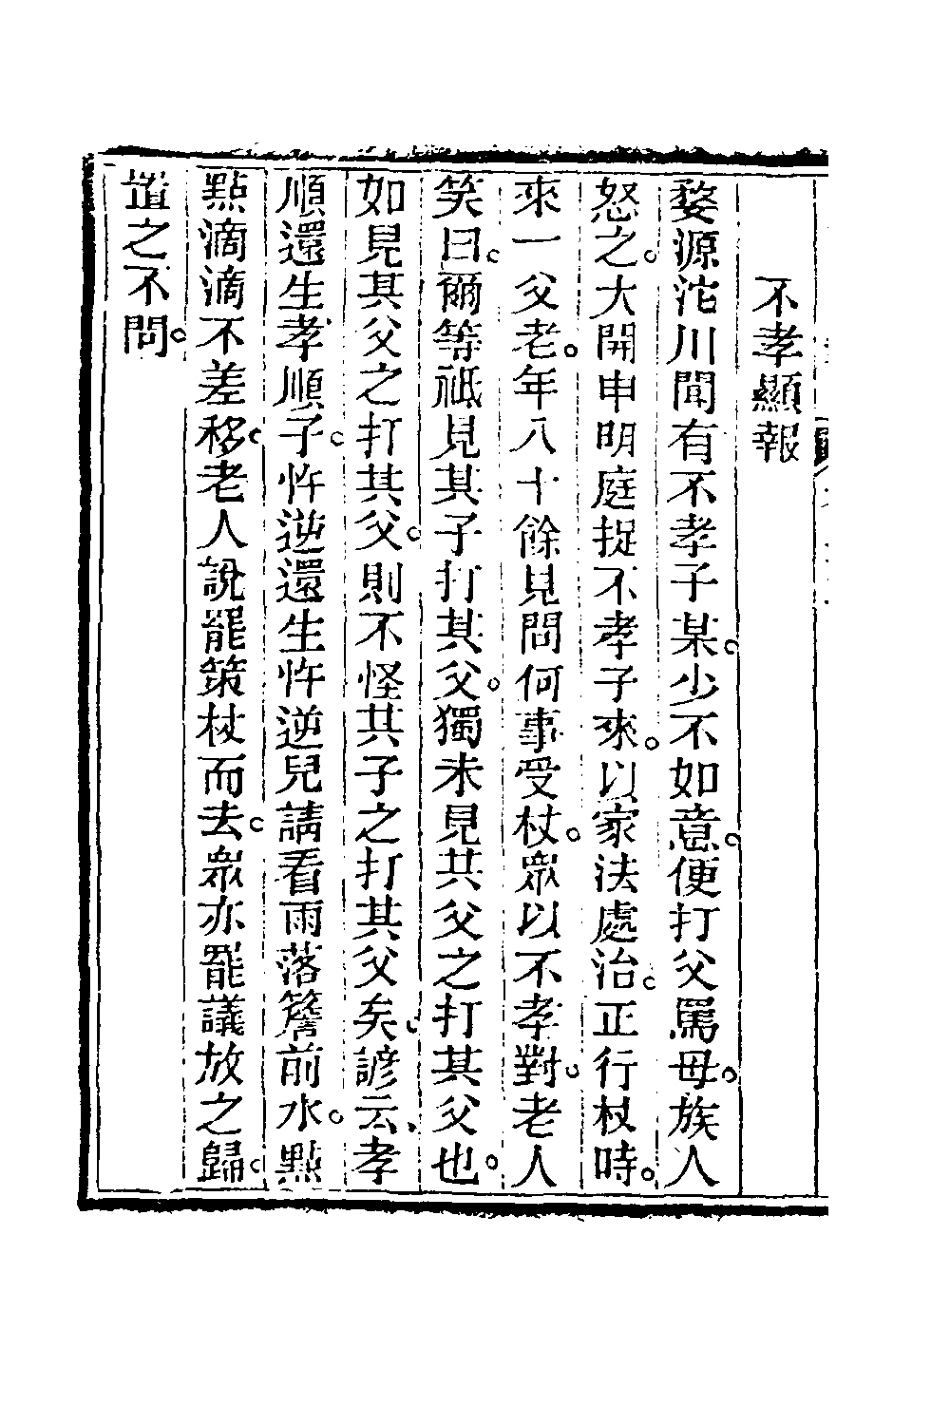 不孝顯報
婺源沱川聞有不孝子某。少不如意。便打父罵母。族人
怒之。大開申明庭捉不孝子來。以家法處治。正行杖時。
來一父老。年八十餘見問何事受杖。眾以不孝對。老人
笑曰。爾等祗見其子打其父。獨未見其父之打其父也。
如見其父之打其父。則不怪其子之打其父矣。諺云、孝
順還生孝順子。忤逆還生忤逆兒請看雨落簷前水。點
點滴滴不差移。老人說罷策杖而去。眾亦罷議放之歸。
置之不問。